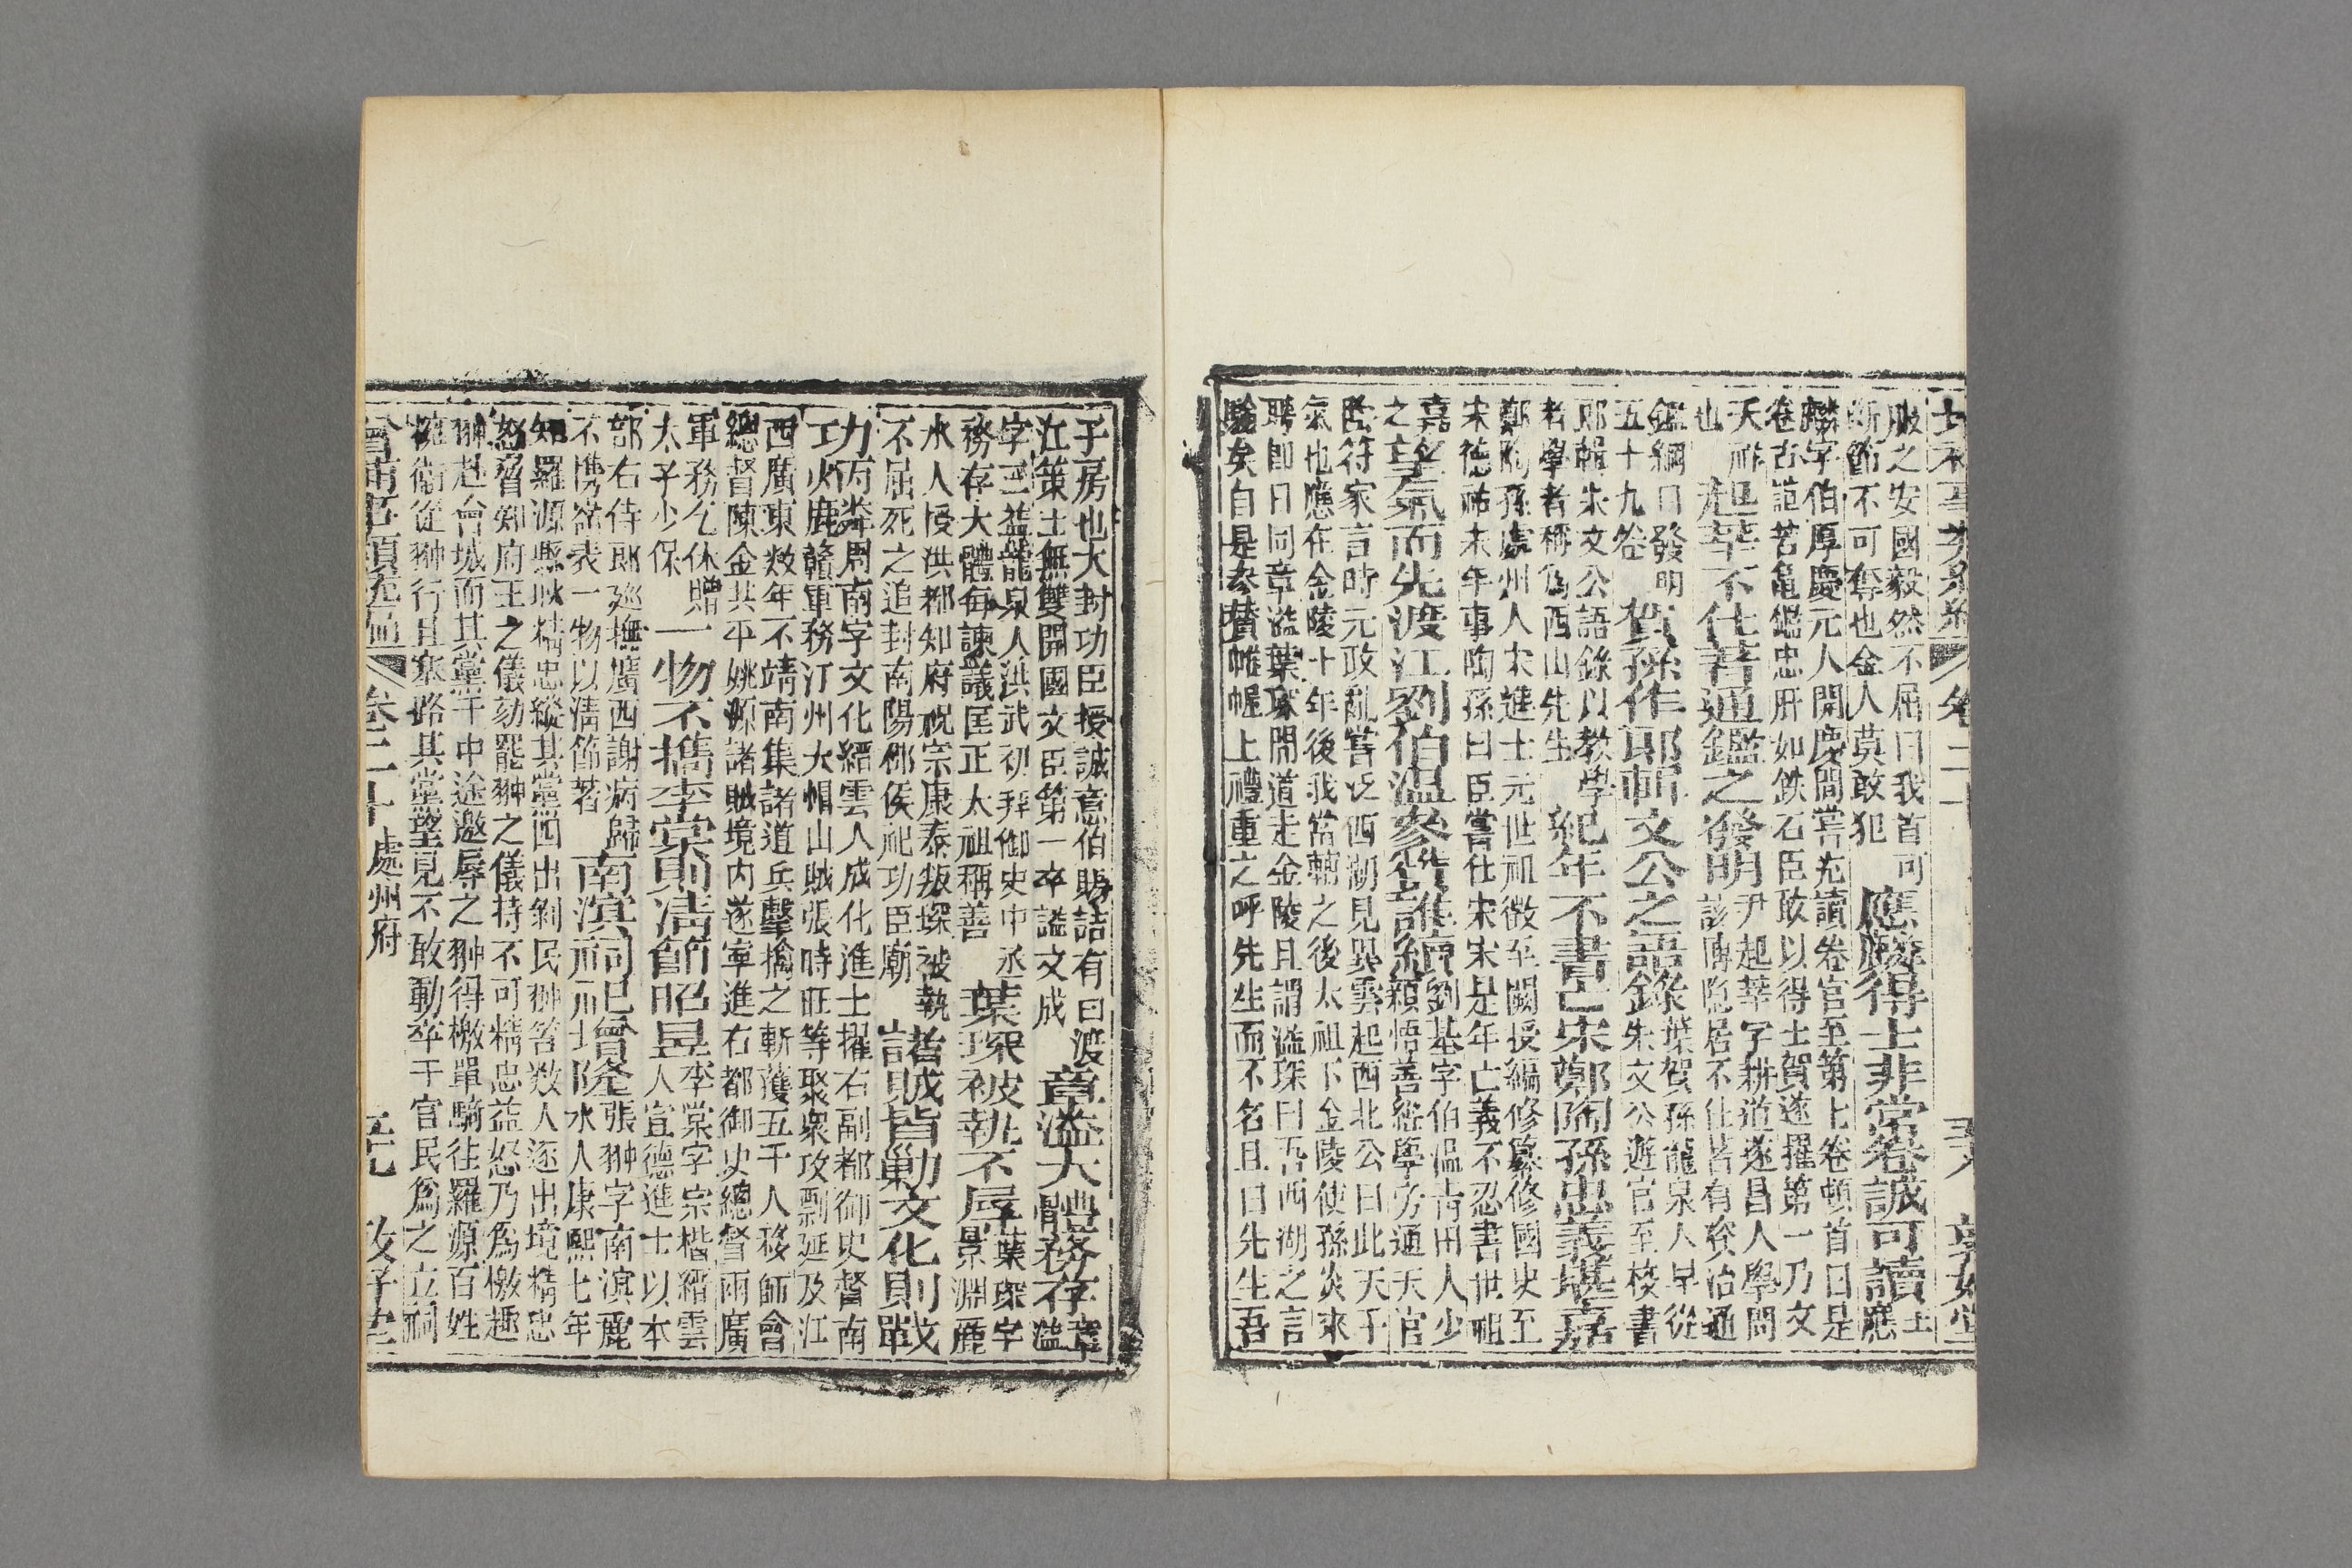 股之安國毅然不屈曰我首可
斷節不可奪也金人莫敢犯
應麟得士非常卷誠可讀
王
應
麟字伯厚慶元人開慶間嘗充讀卷官至第七卷頓首曰是
卷古誼若龜鑑忠肝如鉄石臣敢以得士賀遂擢第一乃文
天祥
也
起莘不仕著通鑑之發明
尹起莘字耕道遂昌人學問
該博隐居不仕著有資治通
鑑綱目發明
五十九卷
賀孫作郎輯文公之語錄
葉賀孫龍泉人早從
朱文公遊官至校書
郎輯朱文公語錄以教學
者學者稱爲西山先生
紀年不書亡宋鄭陶孫忠義堪嘉
鄭陶孫處州人宋進士元世祖徵至闕授編修纂修國史至
宋德祐末年事陶孫曰臣嘗仕宋宋是年亡義不忍書世祖
嘉
之
望氣而先渡江劉伯溫參贊誰續
劉基字伯温青田人少
穎悟善經學旁通天官
陰符家言時元政亂嘗泛西湖見異雲起西北公曰此天子
氣也應在金陵十年後我當輔之後太祖下金陵使孫炎來
聘卽日同章溢葉琛間道走金陵且謂溢琛曰吾西湖之言
驗矣自是叅贊帷幄上禮重之呼先生而不名且曰先生吾
子房也大封功臣授誠意伯賜誥有曰渡
江策士無雙開國文臣第一卒謚文成
章溢大體務存
章
溢
字三益龍泉人洪武初拜御史中丞
務存大體每諫議匡正太祖稱善
葉琛被執不辱
葉琛字
景淵麗
水人授洪都知府祝宗康泰叛琛被執
不屈死之追封南陽郡侯祀功臣廟
諸賊皆勦文化則戰
功
周南字文化縉雲人成化進士擢右副都御史督南
贛軍務汀州大帽山賊張時旺等聚衆攻剽延及江
西廣東数年不靖南集諸道兵擊擒之斬獲五千人移師會
總督陳金共平姚源諸賊境内遂寧進右都御史總督兩廣
軍務乞休贈
太子少保
一物不攜李棠則清節昭昱
李棠字宗楷縉雲
人宣德進士以本
部右侍郎廵撫廣西謝病歸
不携嶺表一物以清節著
南濵祠祀增隆
張翀字南濵麗
水人康熙七年
知羅源縣耿精忠縱其黨四出剝民翀笞数人逐出境精忠
怒脅知府王之儀劾罷翀之儀持不可精忠益怒乃爲檄趣
翀赴會城而其黨于中途邀辱之翀得檄單騎往羅源百姓
擁衛從翀行且塞路其黨望見不敢動卒于官民爲之立祠
卷二十 處州府